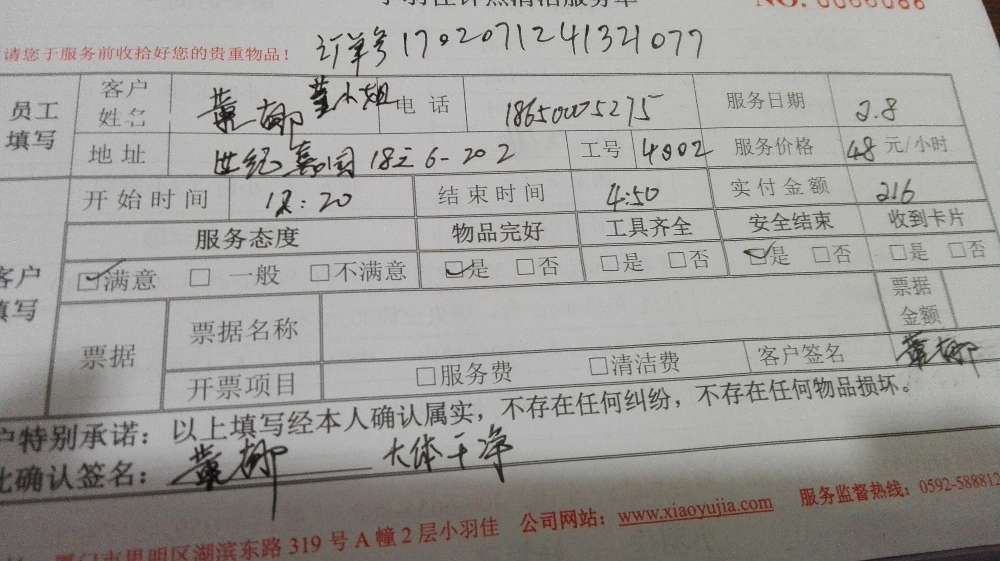 小羽佳计点清洁服务单 NO. 0000086
请您于服务前收拾好您的贵重物品！ 订单号1702071241321077
员工填写 客户姓名 董柳 董小姐 电话 18650005275 服务日期 2.8
地址 世纪嘉园18-6-202 工号 4002 服务价格 48元/小时
开始时间 12:20 结束时间 4:50 实付金额 216
服务态度 物品完好 工具齐全 安全结束 收到卡片
客户填写 ☑满意 □一般 □不满意 ☑是 □否 □是 □否 ☑是 □否 □是 □否
票据 票据名称 票据金额
开票项目 □服务费 □清洁费 客户签名 董柳
户特别承诺：以上填写经本人确认属实，不存在任何纠纷，不存在任何物品损坏。
此确认签名：董柳 大体干净
厦门市思明区湖滨东路319号A幢2层小羽佳 公司网站：www.xiaoyujia.com 服务监督热线：0592-588812